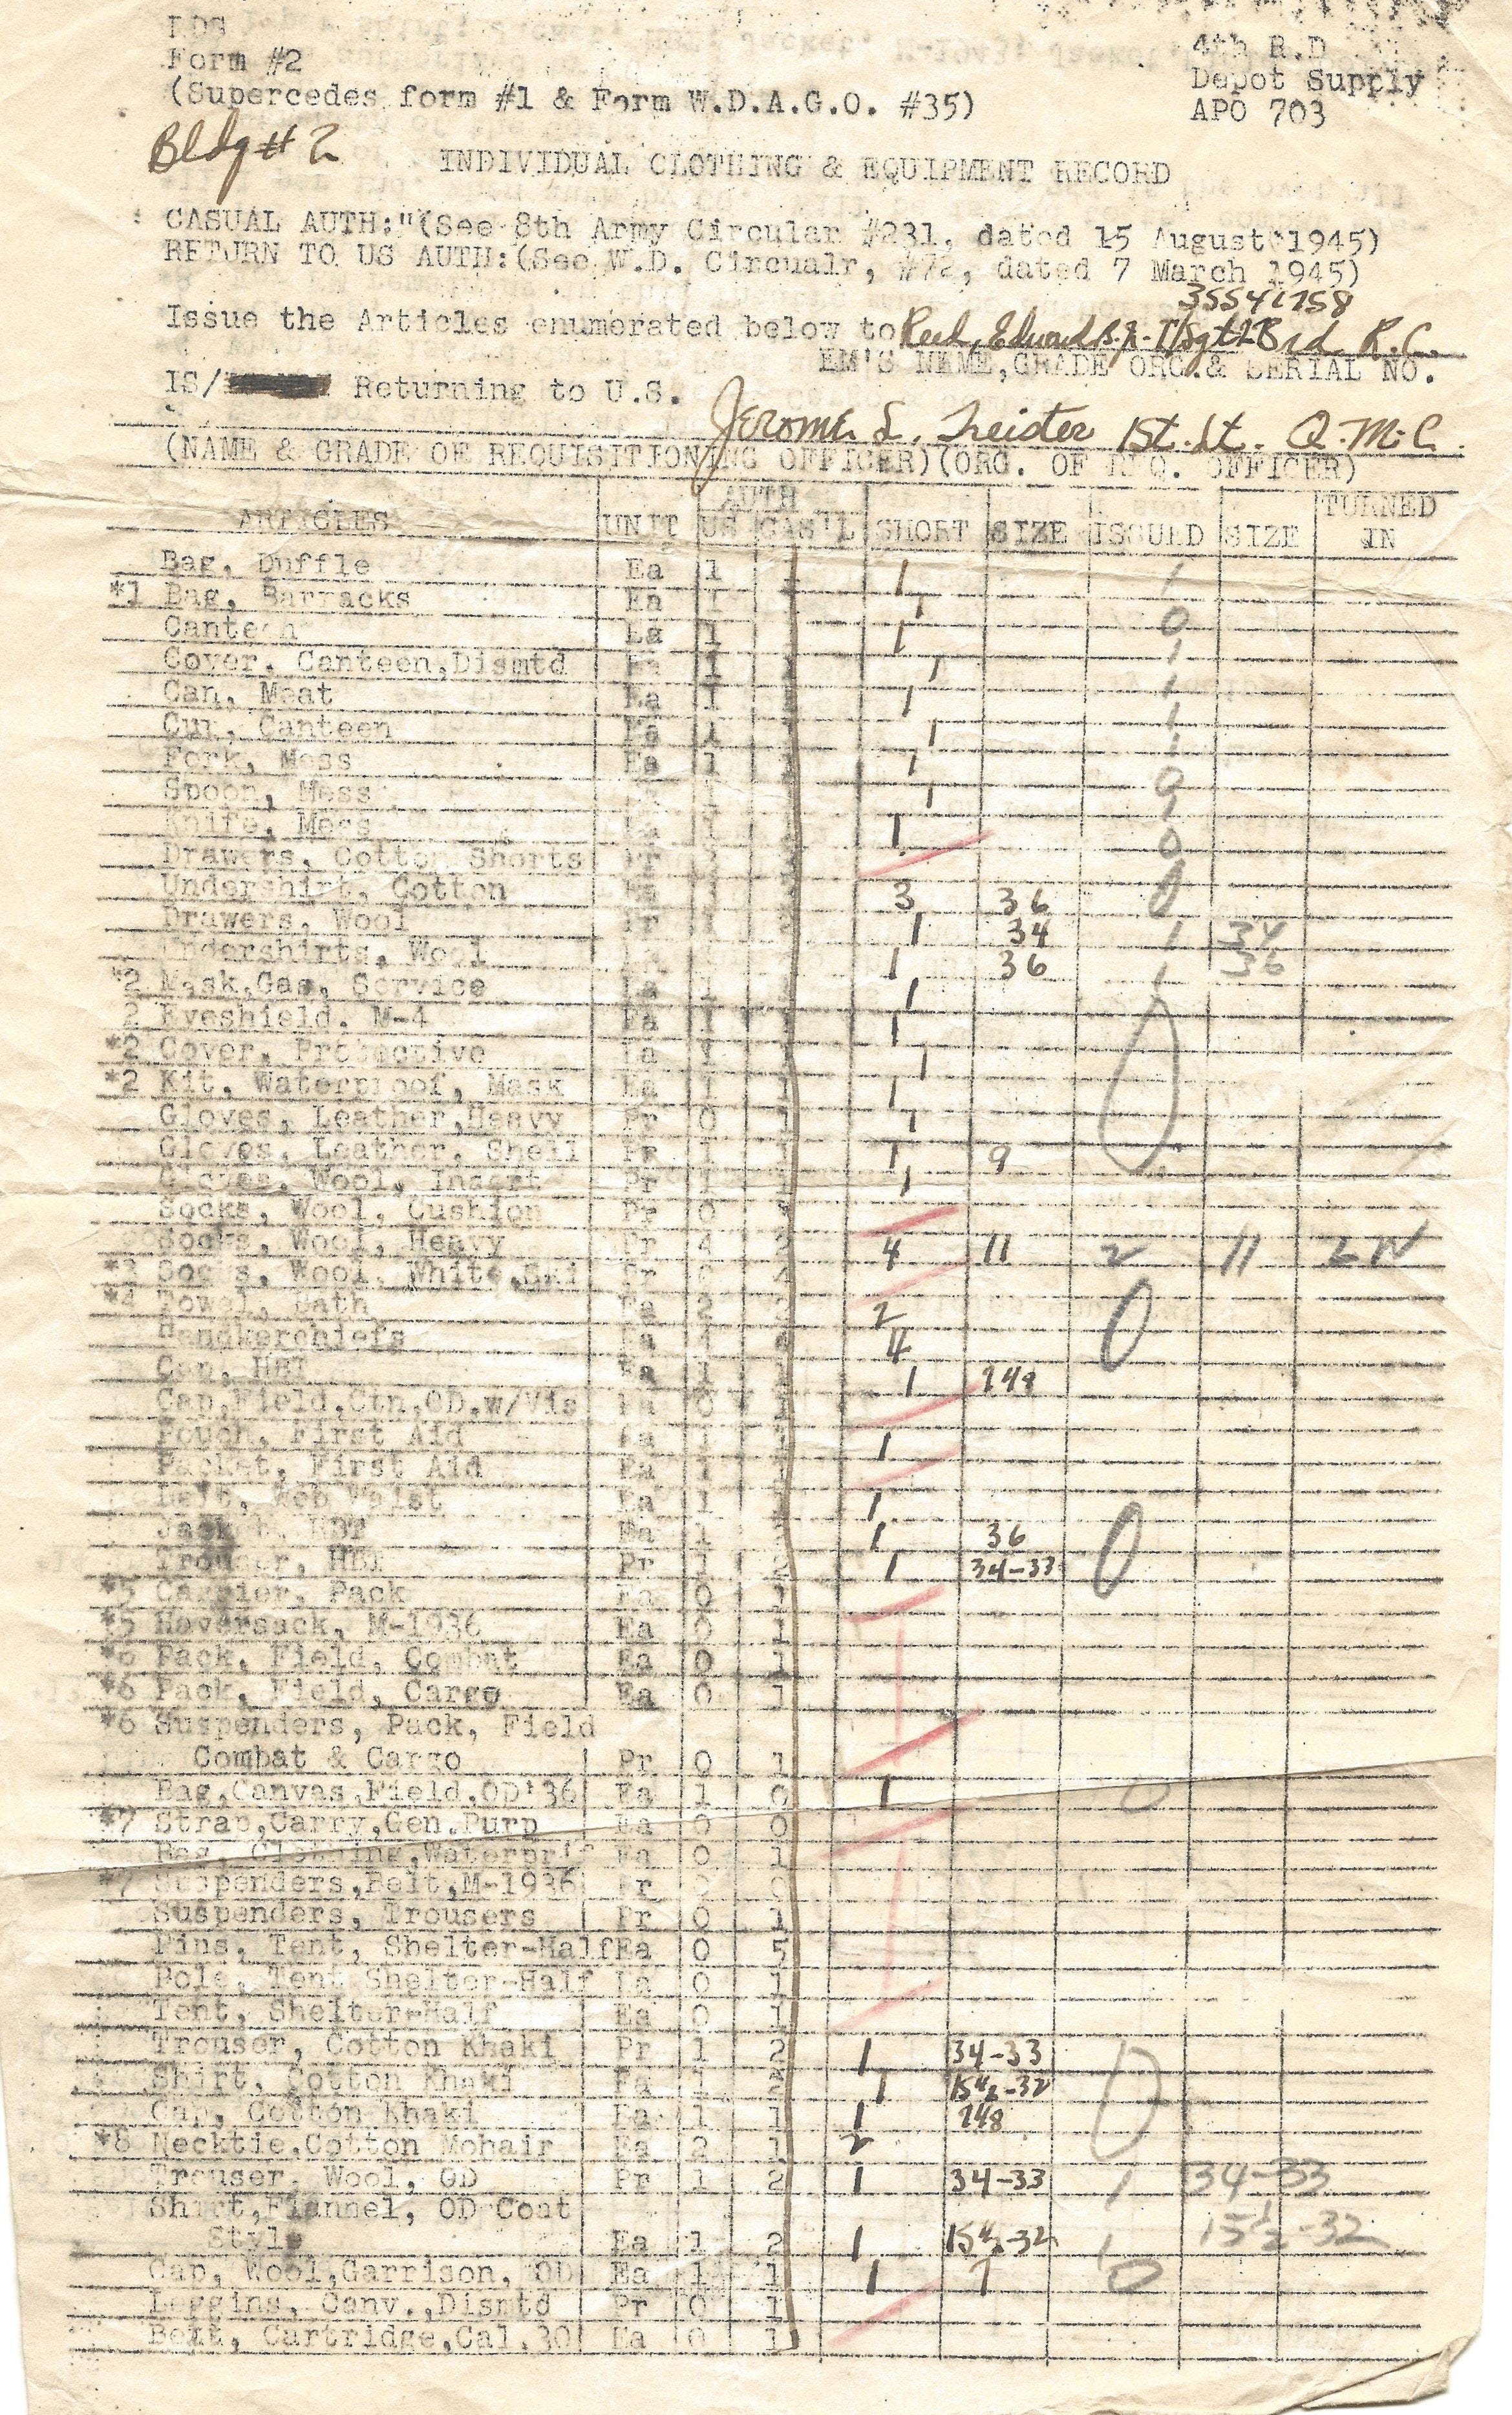 Form #2
(Supercedes form #1 & Form W.D.A.G.O. #35)
4th R.D
Depot Supply
APO 703
Bldg # 2
INDIVIDUAL CLOTHING & EQUIPMENT RECORD
CASUAL AUTH:"(See 8th Army Circular #231, dated 15 August 1945)
RETURN TO US AUTH:(See W.D. Circualr, #72, dated 7 March 1945)
Issue the Articles enumerated below to Reed, Edward B. Jr. T/Sgt R.C.
EM'S NAME, GRADE ORG.& SERIAL NO.
IS/ Returning to U.S.
Jerome L. 1st. Lt. Q.M.C.
(NAME & GRADE OF REQUISITIONING OFFICER)(ORG. OF REQ. OFFICER)
ARTICLES UNIT AUTH US CAS'L SHORT SIZE ISSUED SIZE TURNED IN
Bag, Duffle Ea 1 1 1
*1 Bag, Barracks Ea 1 1 0
Canteen Ea 1 1 1
Cover, Canteen,Dismtd Ea 1 1 1
Can, Meat Ea 1 1 1
Cup, Canteen Ea 1 1 1
Fork, Mess Ea 1 1 1 0
Spoon, Mess 1 1
Knife, Mess Ea 1 1 0
Drawers, Cotton Shorts Pr
Undershirt, Cotton Ea 3 36 0
Drawers, Wool Pr 1 1 34 1 34
Undershirts, Wool 1 36 1 36
*2 Mask,Gas, Service Ea 1 1
2 Eyeshield. M-4 Ea 1 1
*2 Cover, Protective Ea 1 1
*2 Kit, Waterproof, Mask Ea 1 1 1 0
Gloves, Leather,Heavy Pr 0 1 1
Gloves, Leather, Shell Pr 1 1 1 9
Gloves, Wool, Insert Pr 1 1 1
Socks, Wool, Cushion Pr 0
Socks, Wool, Heavy Pr 4 2 4 11 2 11
*3 Socks, Wool, White,Ski Pr
*4 Towel, Bath Ea 2 2
Handkerchiefs Ea 4 4 0
Cap, HBT Ea 1 1 1
Cap,Field,Ctn,OD.w/Vis Ea 0 1
Pouch, First Aid Ea 1 1 1
Packet, First Aid Ea 1 1
Belt, Web Waist Ea 1 1
Jacket, HBT Ea 1 1 36
Trouser, HBT Pr 1 2 1 34-33 0
*5 Carrier, Pack Ea 0 1
*5 Haversack, M-1936 Ea 0 1
*6 Pack, Field, Combat Ea 0 1
*6 Pack, Field, Cargo Ea 0 1
*6 Suspenders, Pack, Field
Combat & Cargo Pr 0 1
Bag,Canvas,Field,OD'36 Ea 1 0 1 0
*7 Strap,Carry,Gen.Purp Ea 0 0
Bag, Clothing,Waterprff Ea 0 1
*7 Suspenders,Belt,M-1936 Pr 0 0
Suspenders, Trousers Pr 0 1
Pins, Tent, Shelter-Half Ea 0 5
Pole, Tent Shelter-Half Ea 0 1
Tent, Shelter-Half Ea 0 1
Trouser, Cotton Khaki Pr 1 2 1 34-33
Shirt, Cotton Khaki Ea 1 2 1 15½-32 0
Cap, Cotton Khaki Ea 1 1 1
*8 Necktie,Cotton Mohair Ea 2 1 2
Trouser, Wool, OD Pr 1 2 1 34-33 1 34-33
Shirt,Flannel, OD Coat
Style Ea 1 2 1 15½-32 1 15½-32
Cap, Wool,Garrison, OD Ea 1 1 1 7 0
Leggins, Canv.,Dismtd Pr 0 1
Belt, Cartridge,Cal.30 Ea 0 1